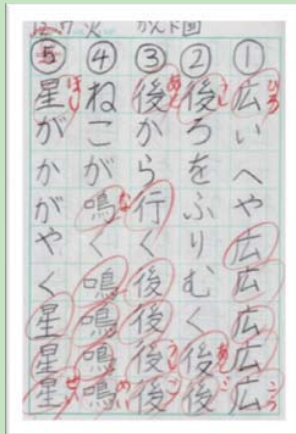 12.7 火 かんド
①広いへや広広広広広
②後ろをふりむく後後
③後から行く後後後後
④ねこが鳴く鳴鳴鳴鳴
⑤星がかがやく星星星